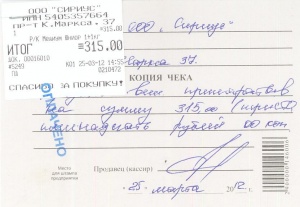 ООО "СИРИУС"
ИНН 5405357664
пр-т К.Маркса. 37
=315.00
ИТОГ
≡315.00
ДОК. 00016010
К01 25-03-12 14:55
45249
0210472
ПД
СПАСИБО ЗА ПОКУПКУ!
ООО „Сириус"
Маркса 37.
КОПИЯ ЧЕКА
на сумму 315,00 (триста
пятнадцать рублей 00 коп
ОПЛАЧЕНО
Продавец (кассир)
Место
для штампа
предприятия
"25" марта 2012